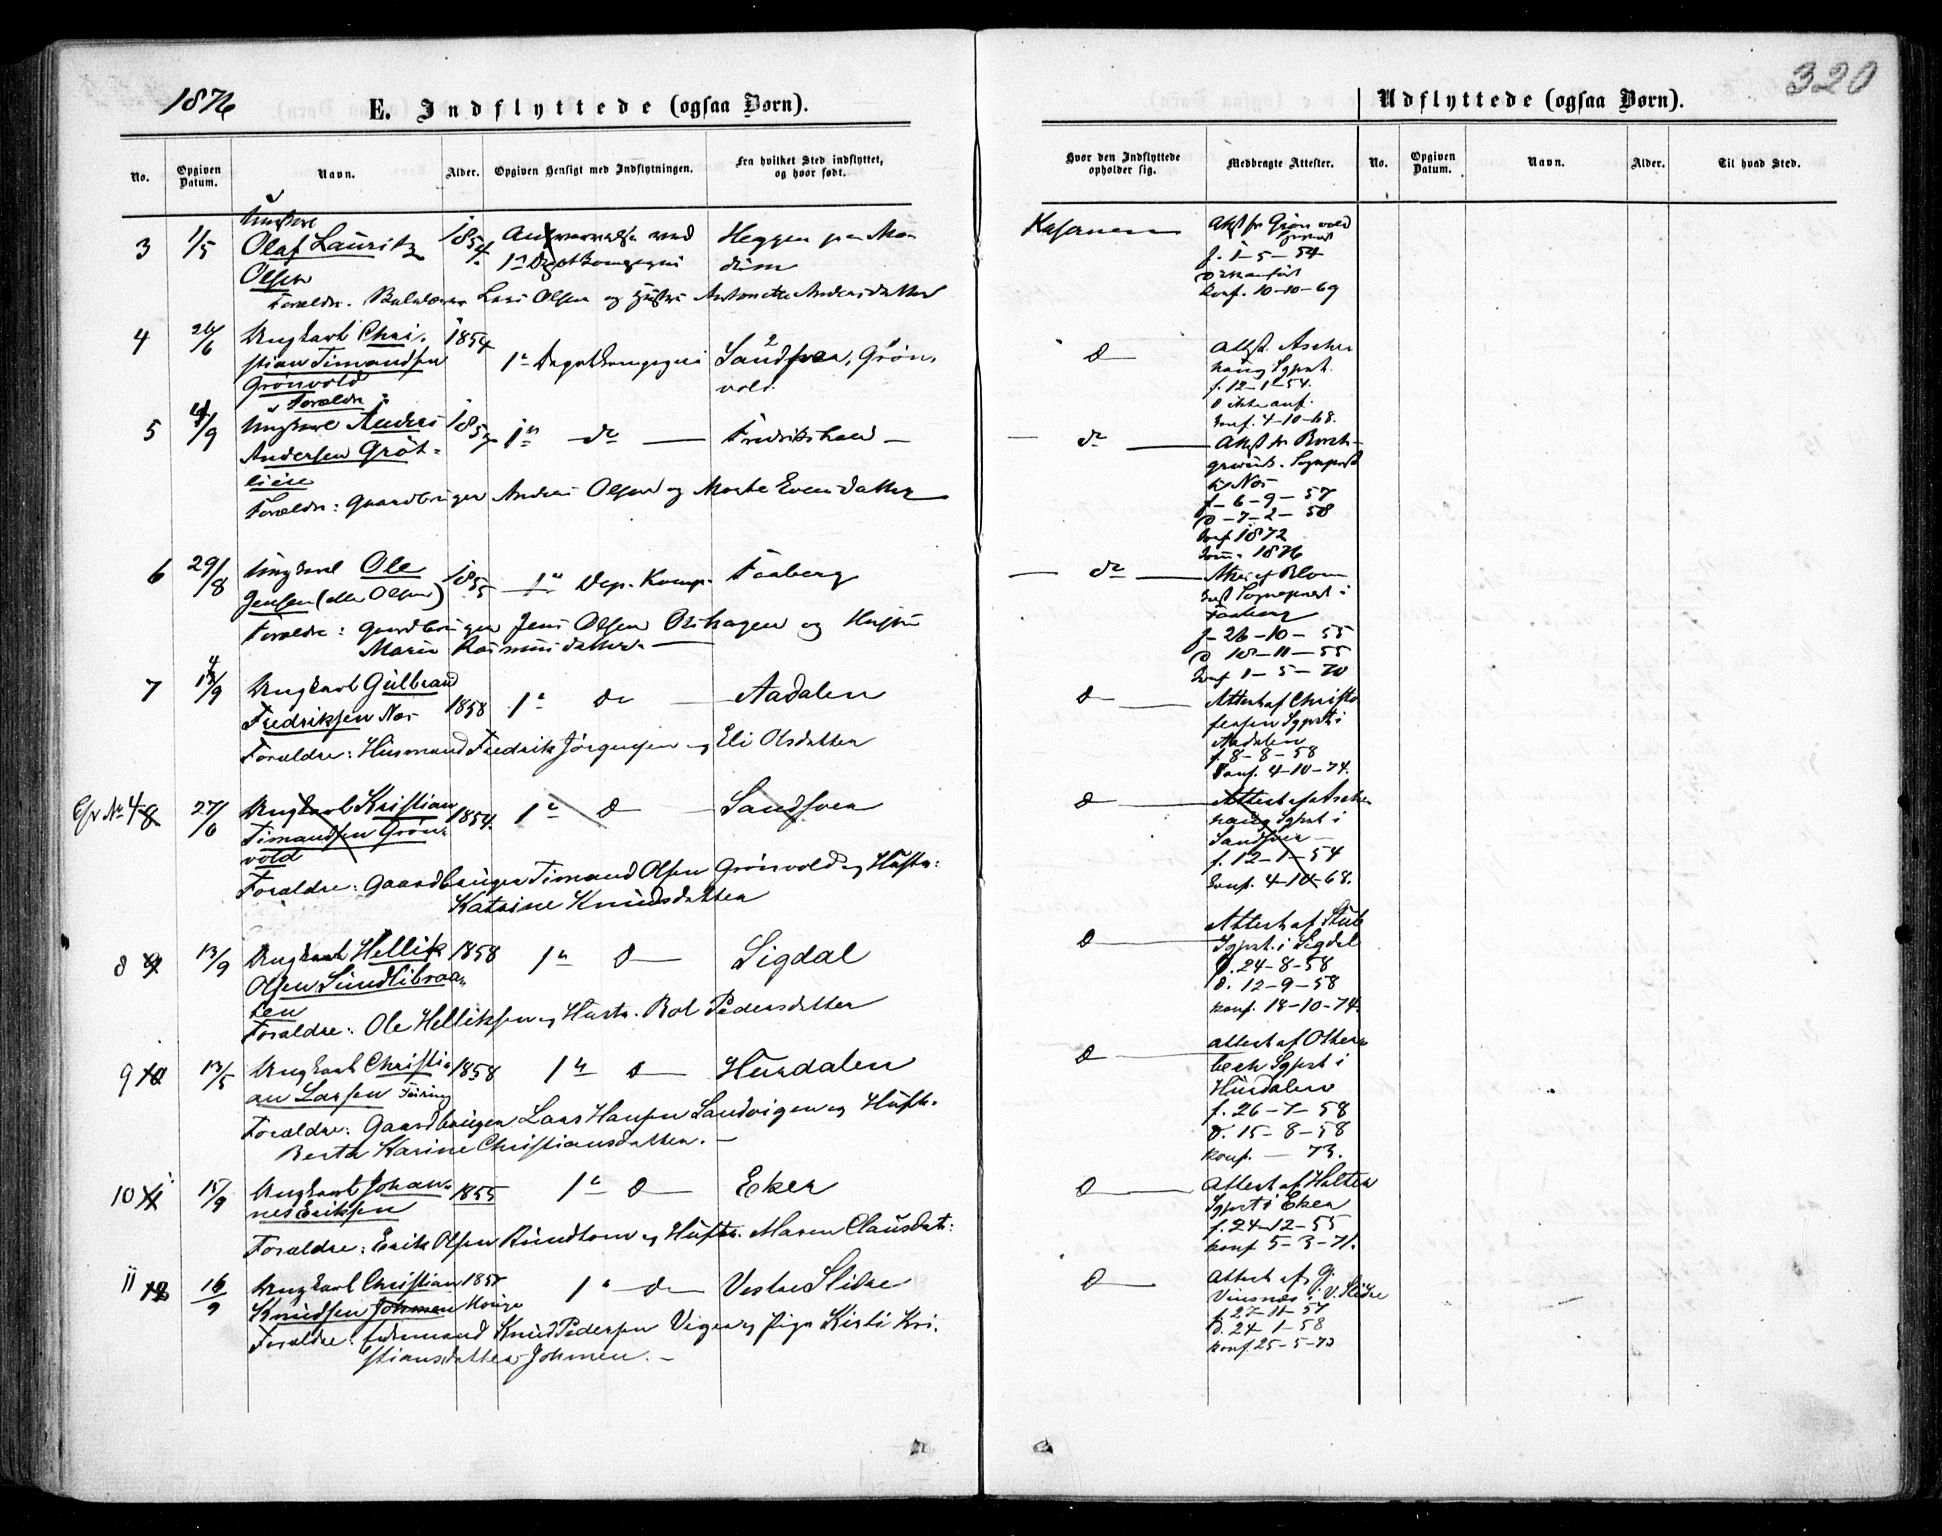 1876
E. Indflyttede (ogsaa Børn).
Udflyttede (ogsaa Børn).
320
No. Opgiven Datum. Navn. Alder. Opgiven Hensigt med Indflytningen. Fra hvilket Sted indflyttet, og hvor født. Hvor den Indflyttede opholder sig. Medbragte Attester. No. Opgiven Datum. Navn. Alder. Til hvad Sted.
3 1/5 Ungkarl
Olaf Lauritz
Olsen
1854.
med
1ste Depotkompagni
Heggen paa Mo-
dum
Kasernen
Attst fr Grønvold
f. 1-5-54
Konf. 10-10-69
Forældre. Lars Olsen og Hustru Antonette Andersdatter
4 26/6 Ungkarl Chri-
stian Timandsen
Grønvold
Forældre:
1854
1ste Depotkompagni
Sandsvær, Grøn-
vold.
do
Attst. Aschen-
haug Sgprst.
f. 12-1-54.
D ikke anf.
Konf. 4-10-68.
5 4/9 Ungkarl Anders
Andersen Gröt-
lien
1857
1ste do
Fredrikshald
do
Attst fr Borch-
Sogneprest
f-6-9-57
D-7-2-58
Konf 1872
1876
Forældre: Gaardbruger Anders Olsen og Marte Evensdatter
6 29/8 Ungkarl Ole
Jensen (eller Olsen)
1855
1ste Dep. Komp.
Faaberg
do
Attest af Blom
Sogneprest i
Faaberg
f-26-10-55
D 18-11-55
Konf 1-5-70
Forældre: Gaardbruger Jens Olsen Onshagen og Hustru
Marie Rasmusdatter
7 14/9 Ungkarl Gulbrand
Fredriksen Næs
1858
1ste do
Aadalen
do
Attest af Christo
fersen Sgprst i
Aadalen
f. 8-8-58
Konf. 4-10-74.
Forældre: Husmand Fredrik Jørgensen og Eli Olsdatter
Cfr No 4 8 27/6 Ungkarl Kristian
Timandsen Grøn-
vold
1854.
1ste do
Sandsvær
do
Attest af Aschen
haug Sgprst i
Sandsvær
f. 12-1-54
Konf. 4-10-68.
Forældre: Gaardbruger Timand Olsen Grønvold og Hustr:
Katrine Knudsdatter
8 9 13/9 Ungkarl Hellik
Olsen Sundlibraa-
ten
1858
1ste do
Sigdal
do
Attest af Stub
Sgprst. i Sigdal
f. 24-8-58
D. 12-9-58
Konf. 18-10-74.
Forældre: Ole Helliksen og Hustr. Rol Pedersdatter
9 10 13/5 Ungkarl Christi-
an Larsen Feiring
1858
1ste do
Hurdalen
do
Attest af Otter-
bech Sgprst i
Hurdalen
f. 26-7-58
D. 15-8-58
Konf. - 73.
Forældre: Gaardbruger Lars Hansen Sandvigen og Hustr.
Berta Karine Christiansdatter.
10 11 15/9 Ungkarl Johan-
nes Eriksen
1855
1ste do
Eker
do
Attest af Halten
Sgprst i Eker
f. 24-12-55
Konf 5-3-71.
Forældre: Erik Olsen Rundtom og Hustr. Maren Clausdat:
11 12 16/9 Ungkarl Christian
Knudsen Johmen
1857
1ste do
Vestre Slidre
do
Attest af G.
Vinsnæs i V. Slidre
f. 27-11-57
D. 24-1-58
Konf 25-5-73
Forældre: Knud Pedersen Vigen og Pige Kirsti Kri-
stiansdatter Johmen.